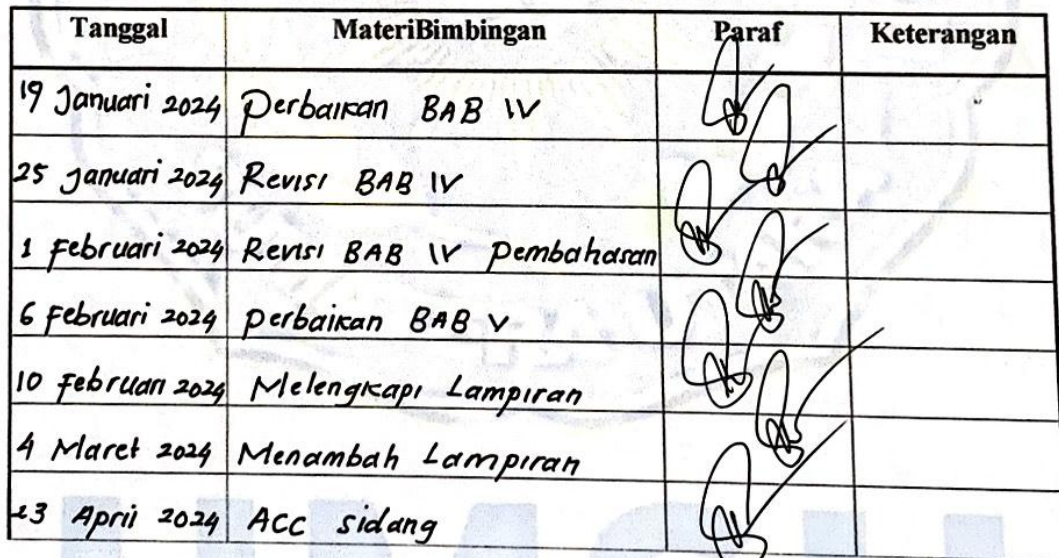 Tanggal MateriBimbingan Paraf Keterangan
19 Januari 2024 Perbaikan BAB IV
25 Januari 2024 Revisi BAB IV
1 Februari 2024 Revisi BAB IV Pembahasan
6 Februari 2024 Perbaikan BAB V
10 Februari 2024 Melengkapi Lampiran
4 Maret 2024 Menambah Lampiran
23 April 2024 ACC sidang